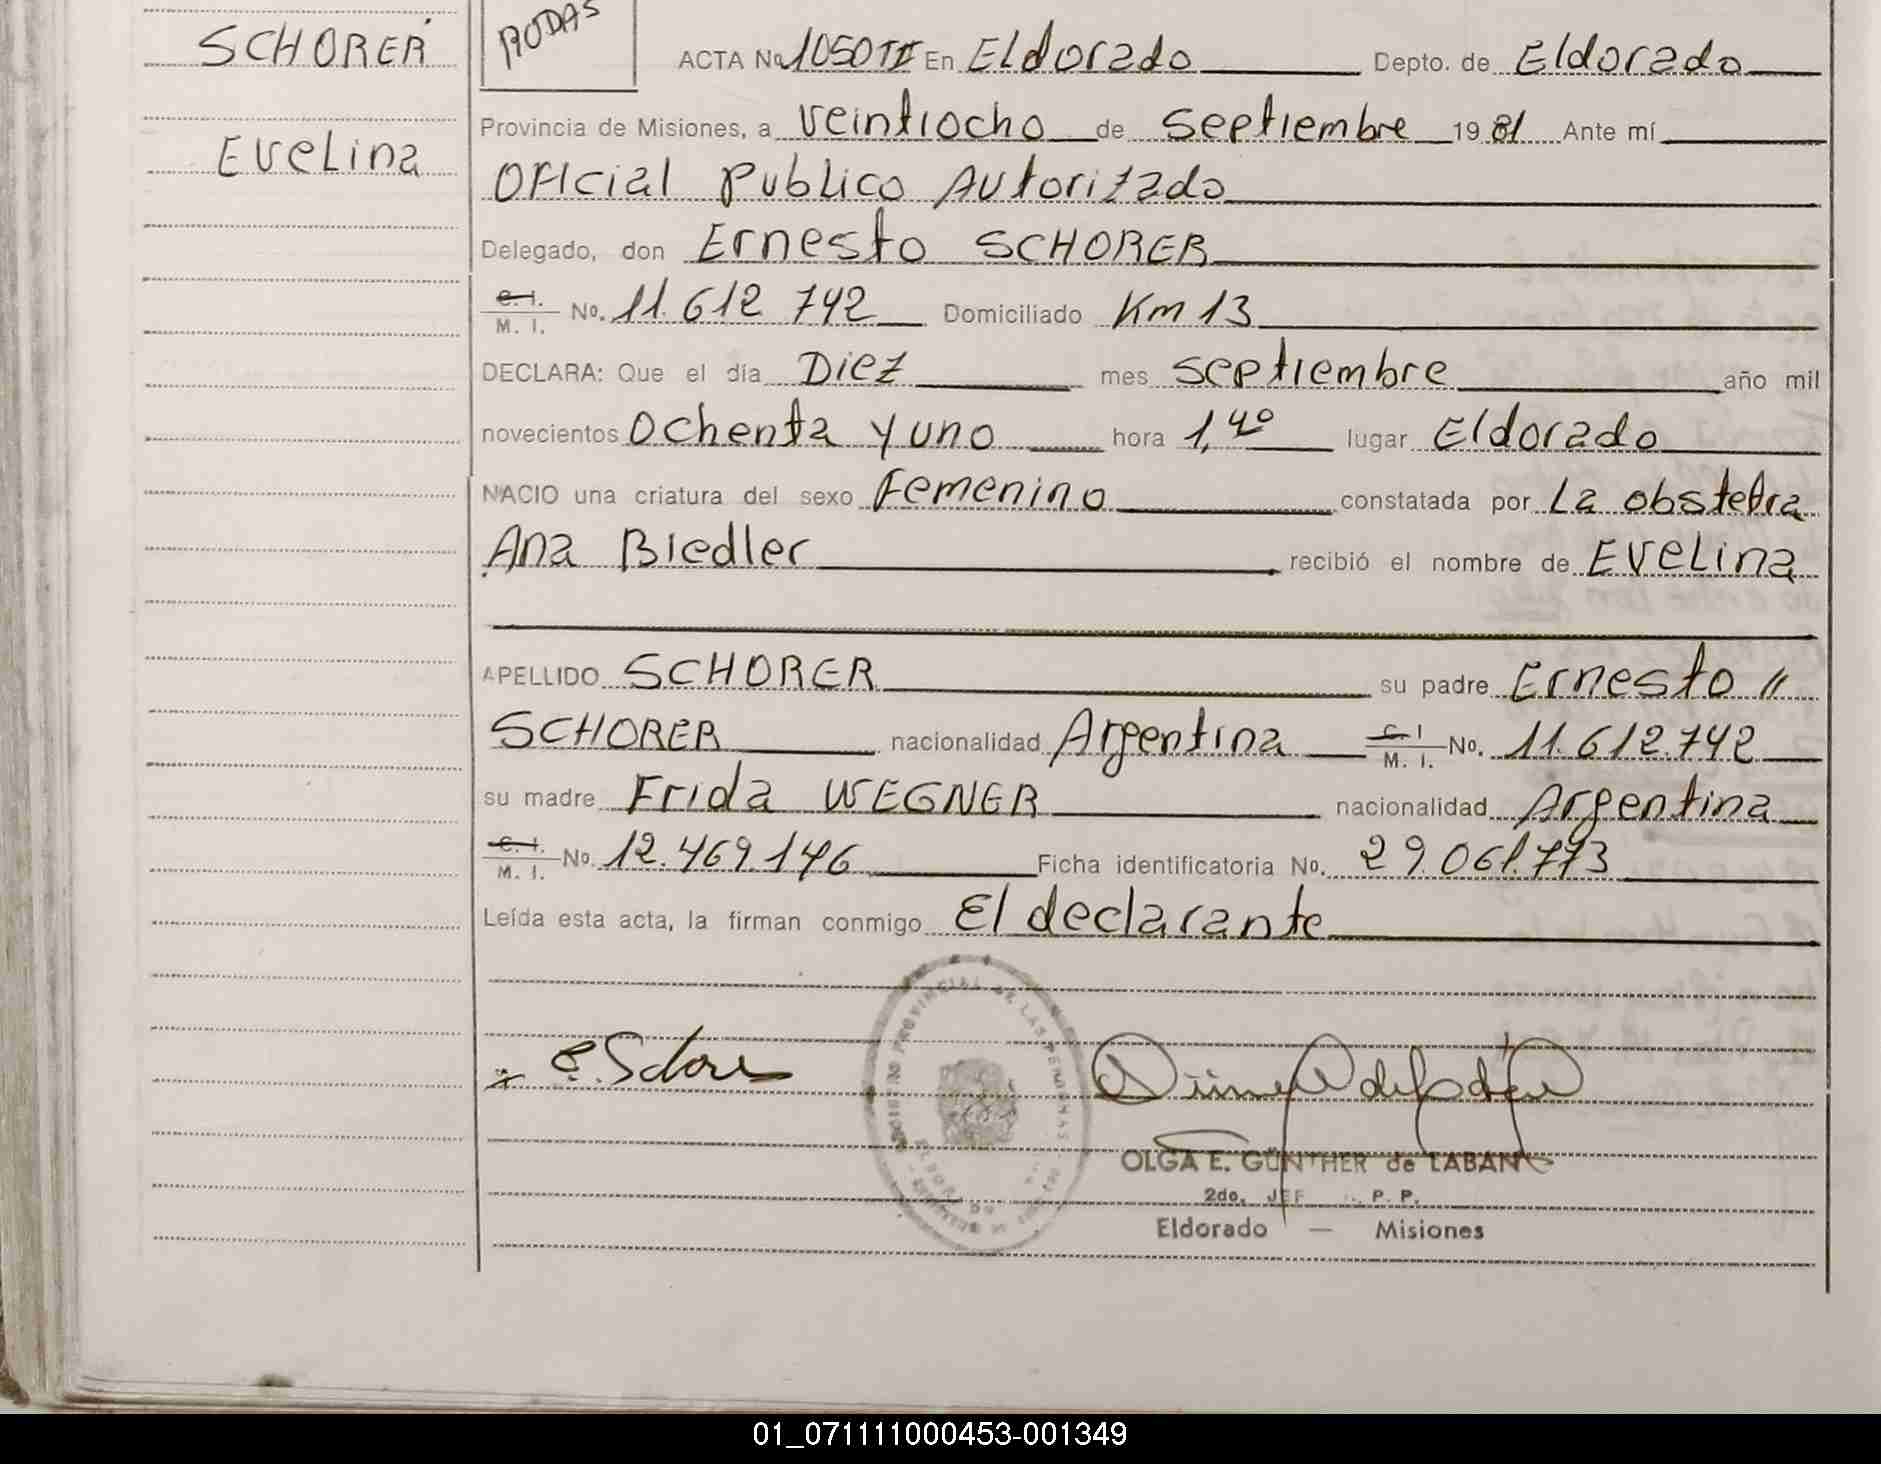 SCHORER
Evelina
RODAS
ACTA No 1050 TII En Eldorado Depto. de Eldorado
Provincia de Misiones, a veintiocho de septiembre 1981 Ante mí
Oficial Publico Autorizado
Delegado, don Ernesto SCHORER
C. I. M. I. No. 11.612 742 Domiciliado Km 13
DECLARA: Que el día Diez mes septiembre año mil
novecientos Ochenta y uno hora 1,40 lugar Eldorado
NACIO una criatura del sexo Femenino constatada por La obstetra
Ana Biedler recibió el nombre de Evelina
APELLIDO SCHORER su padre Ernesto "
SCHORER nacionalidad Argentina C. I M. I. No. 11.612.742
su madre Frida WEGNER nacionalidad Argentina
C. I. M. I. No. 12.469.146 Ficha identificatoria No. 29.061.773
Leída esta acta, la firman conmigo El declarante
PROVINCIAL DE LAS PERSONAS
OLGA E. GÜNTHER de LABAN
2do. P. P.
Eldorado — Misiones
01_071111000453-001349